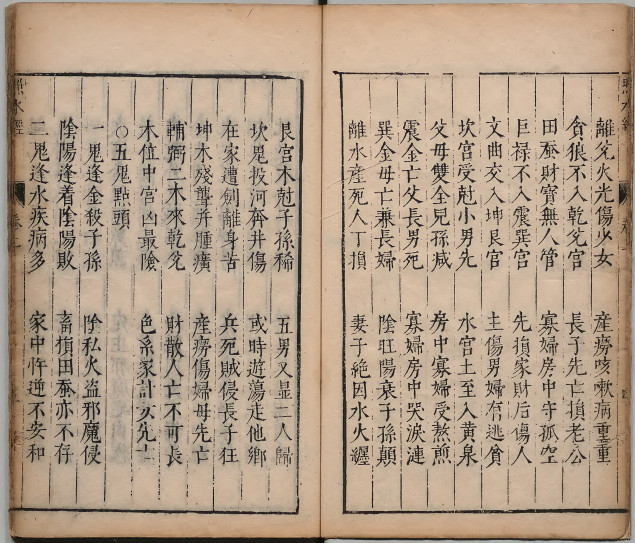 離兌火光傷少女　產癆咳嗽病重重
貪狼不入乾兌宮　長子先亡損老公
田蚕財寶無人管　寡婦房中守孤空
巨祿不入震巽宮　先損家財后傷人
文曲交入坤艮宮　主傷男婦有逃貧
坎宮受尅小男先　水宮土至入黃泉
父母雙全兒孫减　房中寡婦受熬煎
震金亡父長男死　寡婦房中哭淚漣
巽金母亡兼長婦　陰旺陽衰子孫顛
離水產死人丁損　妻子絕因水火纒
艮宮木尅子孫稀　五男又是二人歸
坎鬼投河奔井傷　或時遊蕩走他鄉
在家遭劍離身苦　兵死賊侵長子狂
坤木殘聾并腫癀　產癆傷婦母先亡
輔弼二木來乾兌　財散人亡不可長
木位中宮凶最陰　色系家計女先亡
○五鬼點頭
一鬼逢金殺子孫　陰私火盜邪魔侵
陰陽逢着陰陽敗　畜損田蚕亦不存
二鬼逢水疾病多　家中忤逆不安和
照水經
卷二